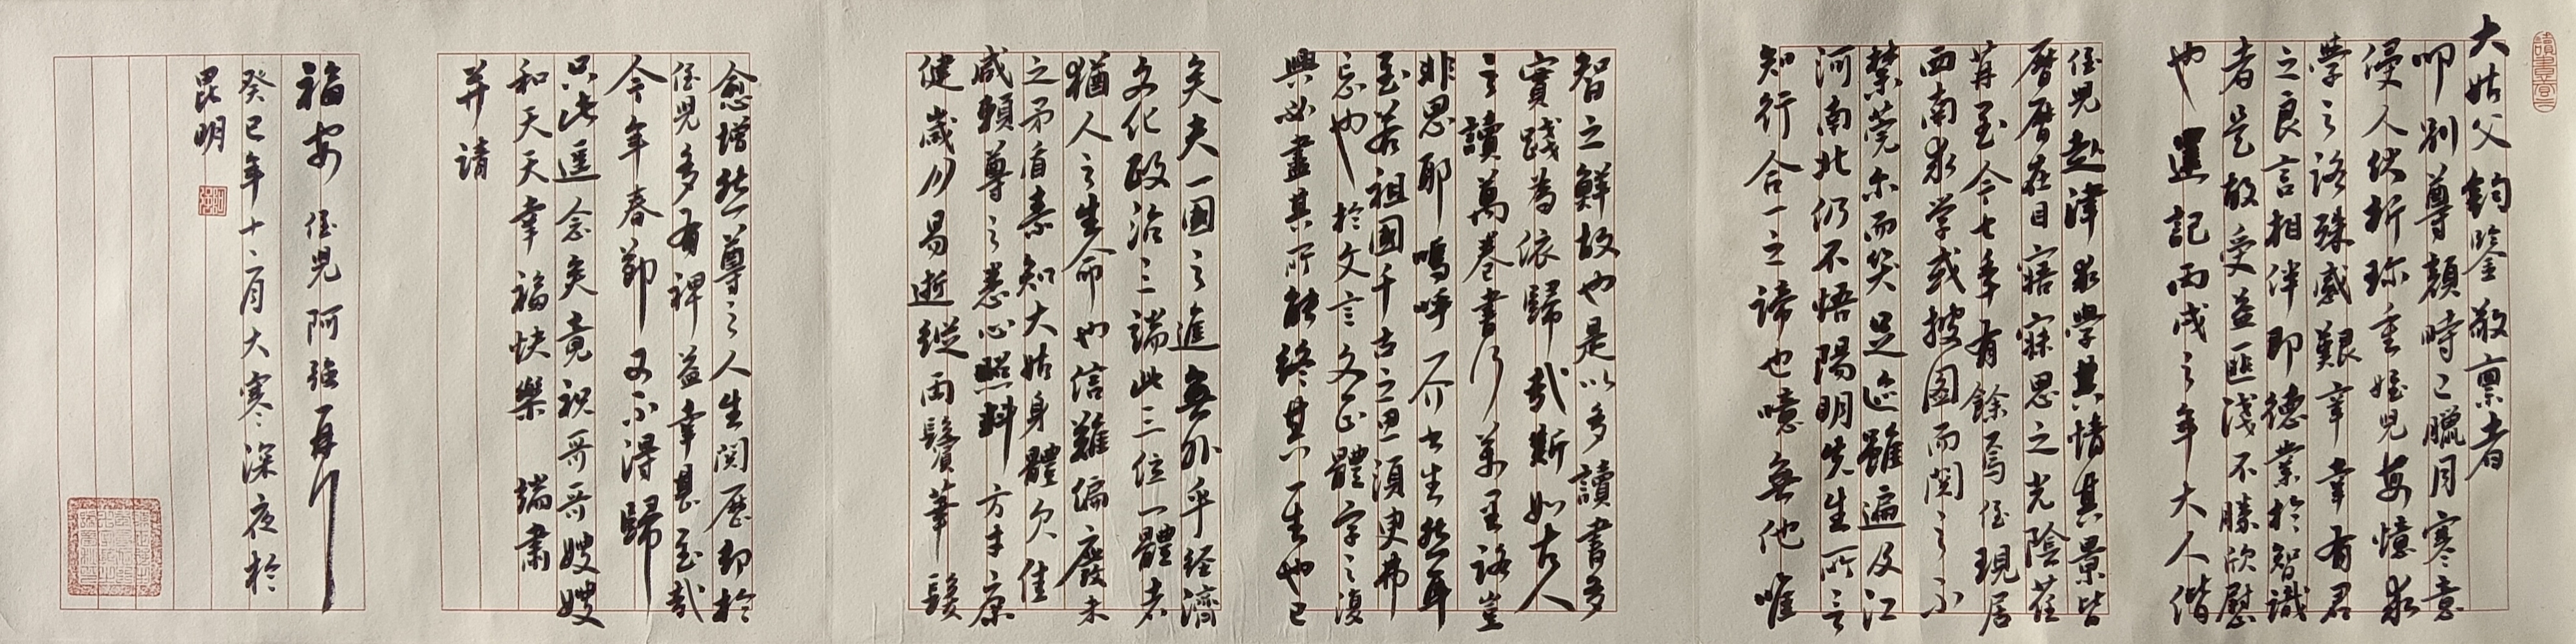 大姑父鈞鑒敬禀者
叩别尊顏時已臘月寒意
侵人伏祈珍重侄兒每憶求
學之路殊感艱辛幸有君
之良言相伴即德業於智識
者是故受益匪淺不勝欣慰
也還記丙戌之年大人偕
侄兒赴津求學其情其景皆
曆曆在目寤寐思之光陰荏
苒至今七年有餘焉侄現居
西南求学或披图而閱之不
禁莞尔而笑足迹雖遍及江
河南北仍不悟陽明先生所言
知行合一之諦也噫無他唯
智之鮮故也是以多讀書多
實踐為依歸哉斯如古人
言讀萬卷書行萬里路豈
非思耶嗚呼一介书生然耳
至若祖國千古之思須臾弗
忘也於文言文正體字之復
興必盡其所能終其一生也已
矣夫一國之進無外乎经濟
文化政治三端此三位一體者
猶人之生命也信難偏廢未
之矛盾素知大姑身體欠佳
咸賴尊之悉心照料方才康
健歲月易逝縱兩鬢華髮
愈增然尊之人生閱歷却於
侄兒多有裨益幸甚至哉
今年春節又不得歸
只此遥念矣竟祝哥哥嫂嫂
和天天幸福快樂 端肅
并請
福安 侄兒阿强再行
癸巳年十二月大寒深夜於
昆明